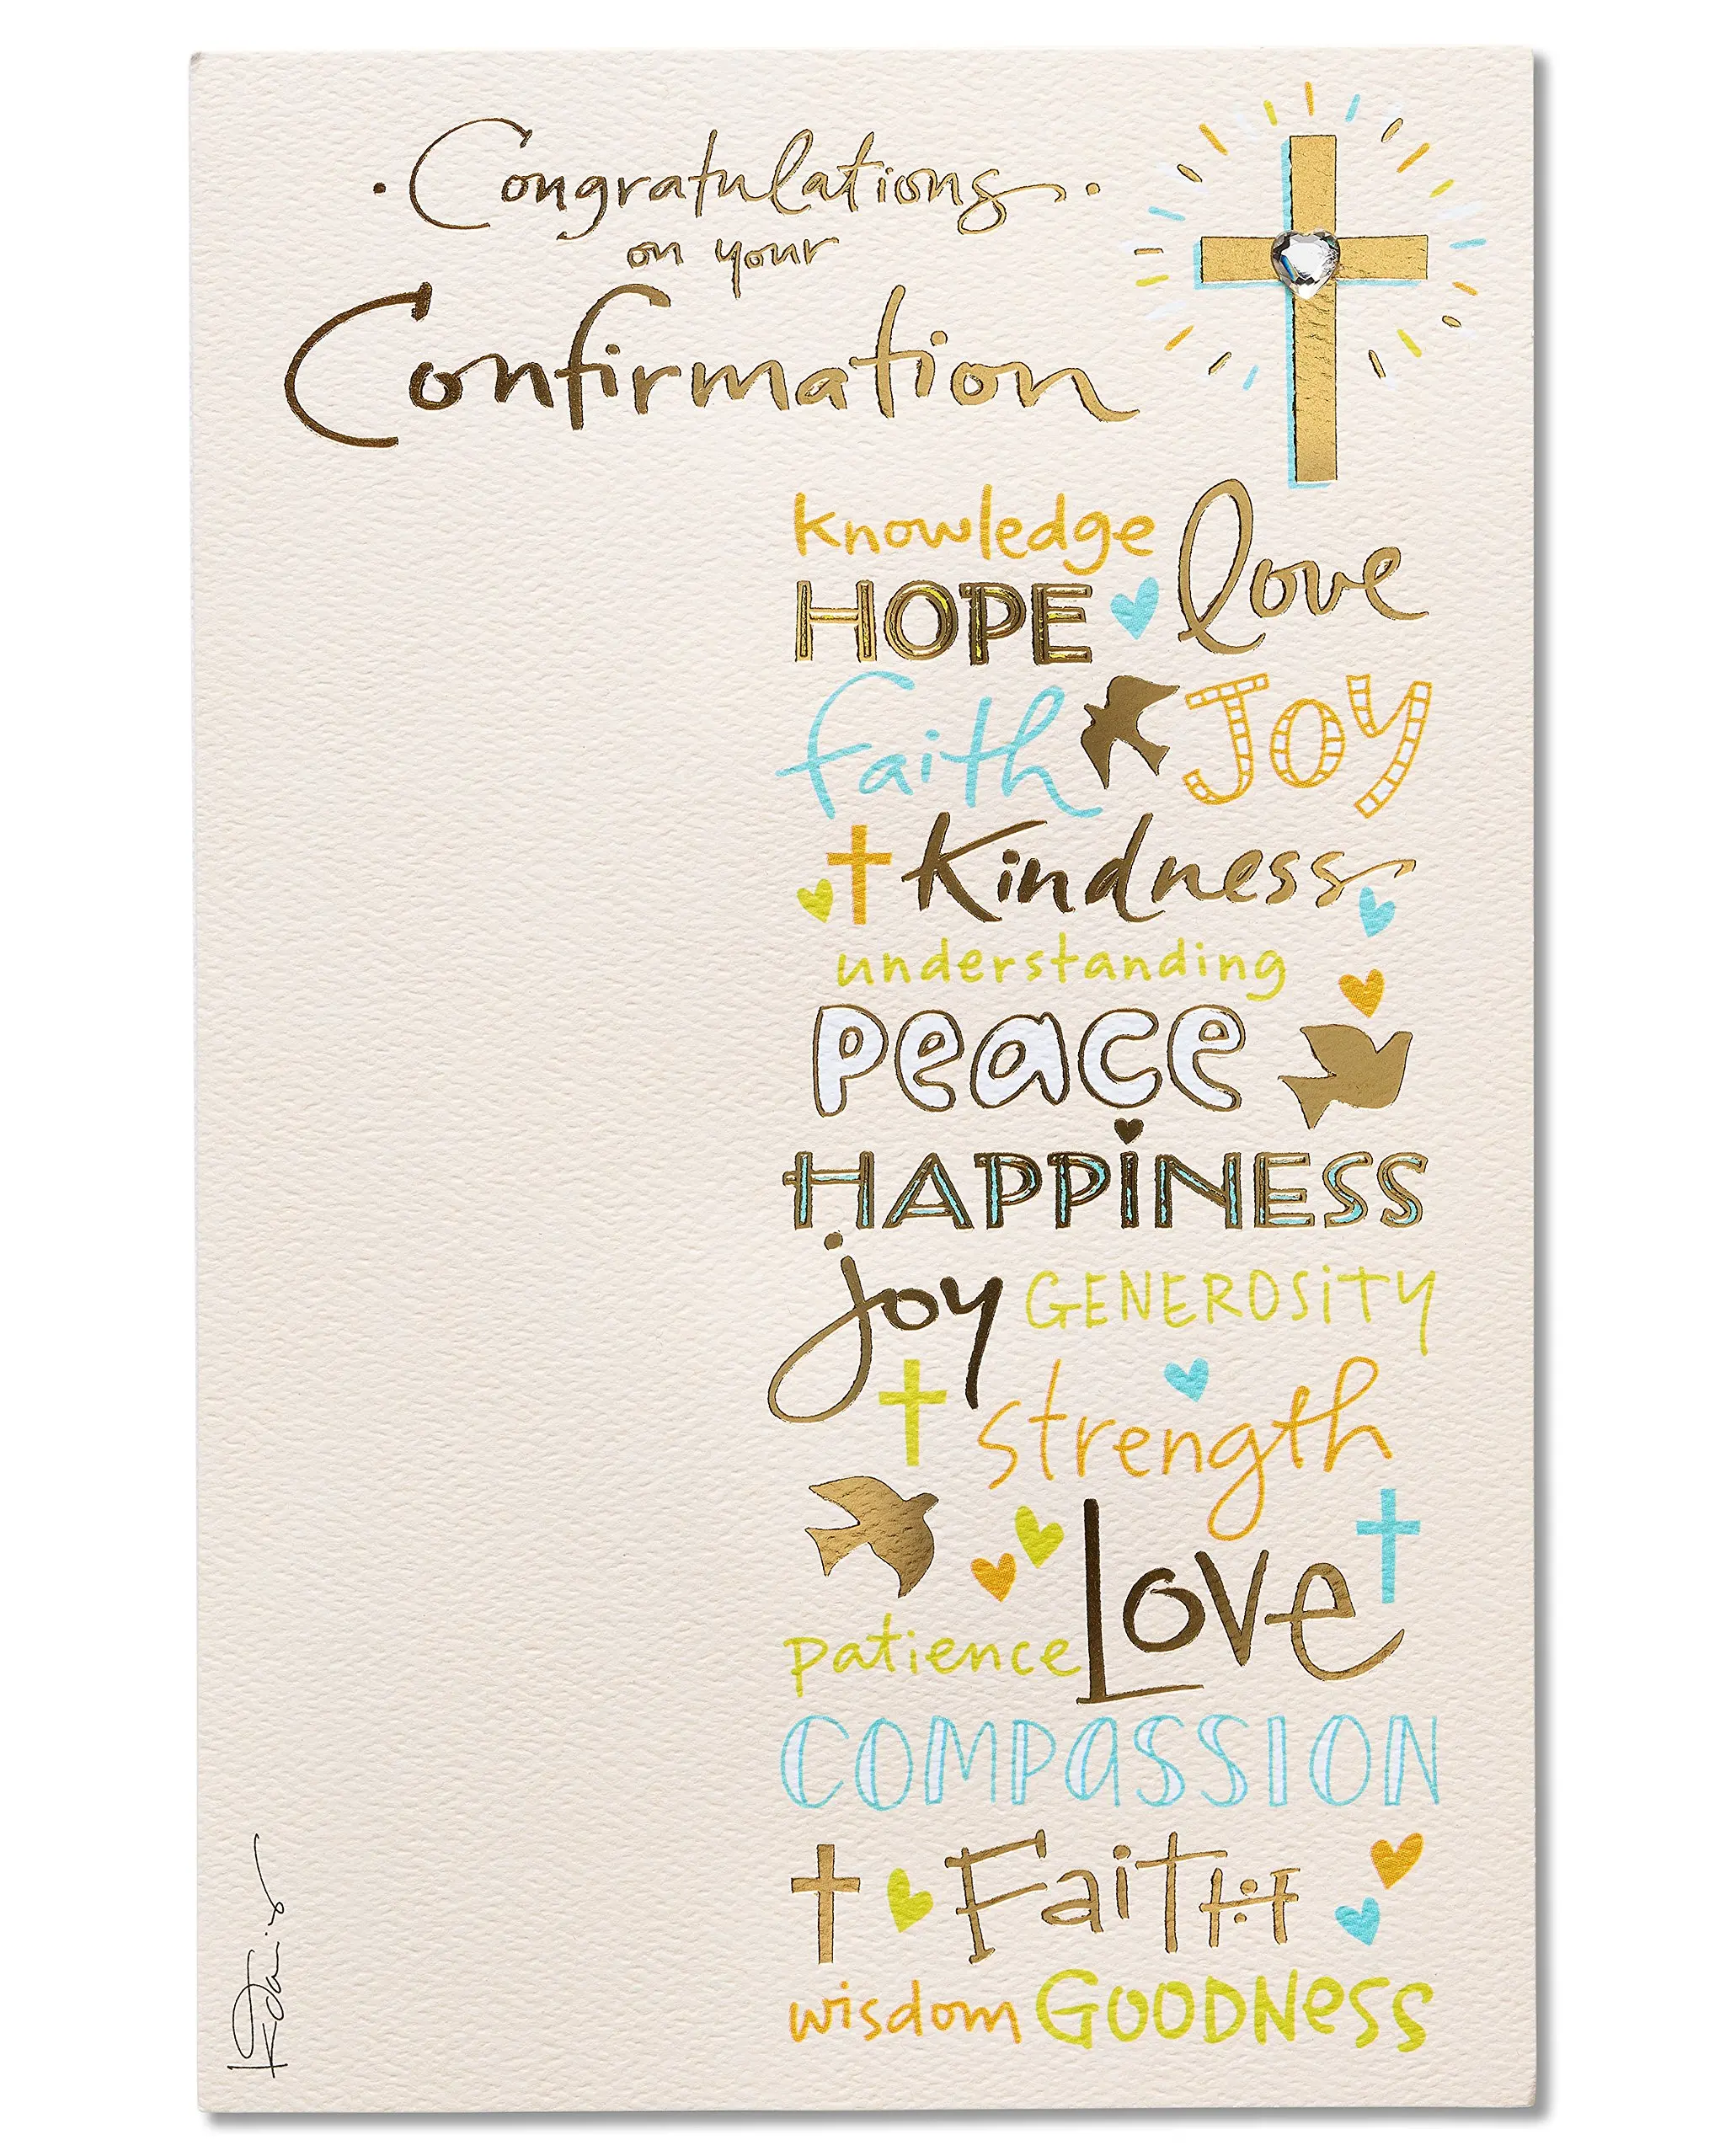 Congratulations
on your
Confirmation
knowledge love
HOPE
faith JOY
Kindness
understanding
peace
HAPPiNESS
joy GENEROSiTY
strength
Love
patience
COMPASSION
FaiTH
wisdom GOODNess